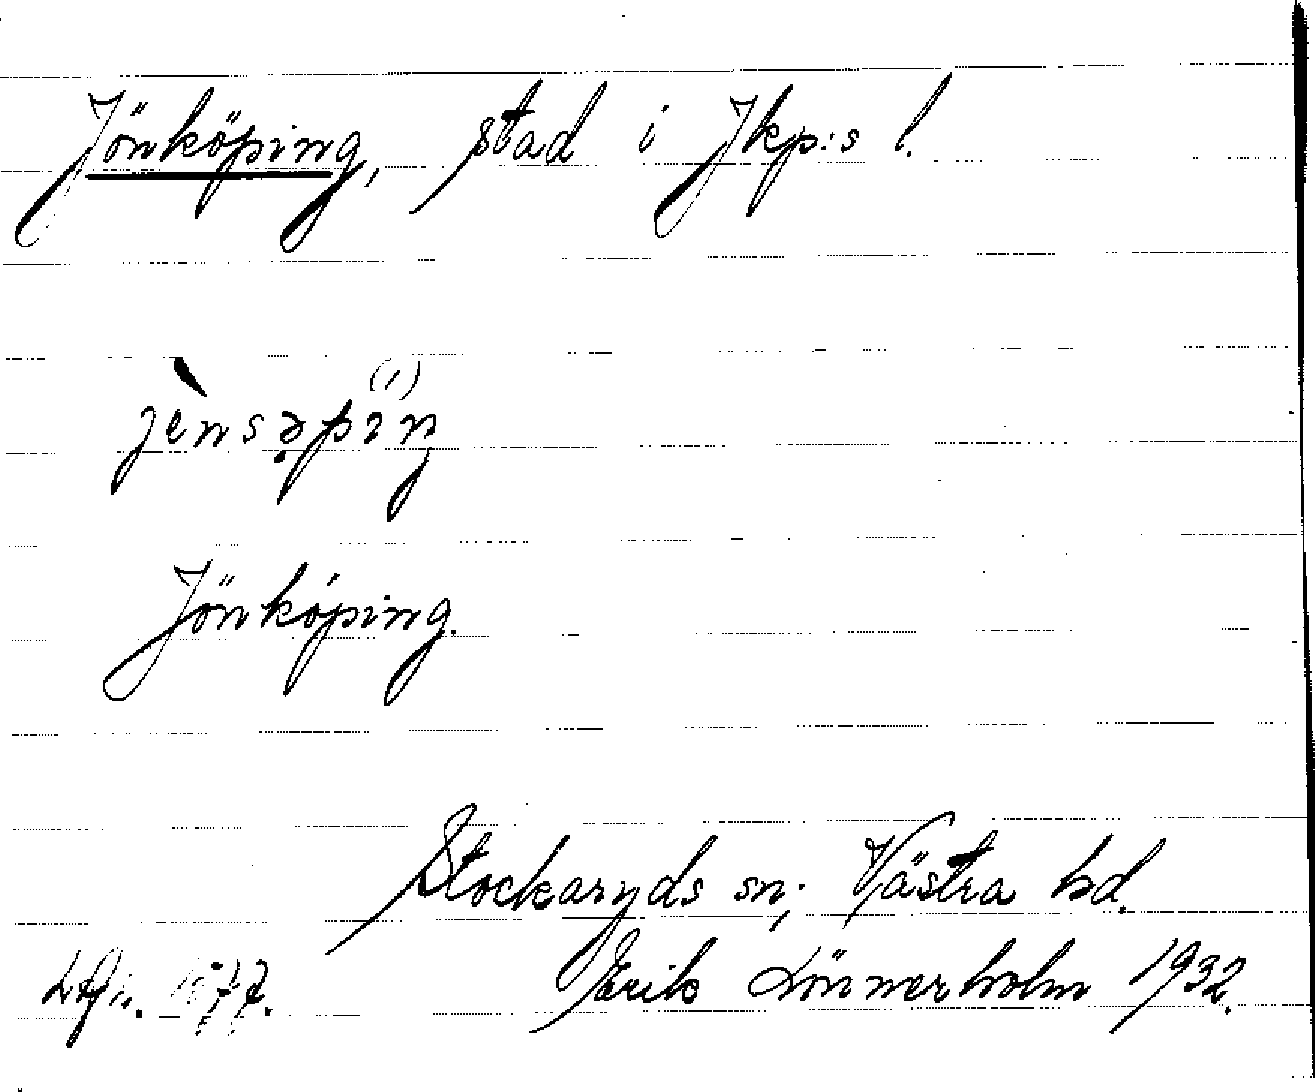 Jönköping, stad i Jkp:s l.
Jönköping.
Stockaryds sn; Västra hd.
Erik Lönnerholm 1932.